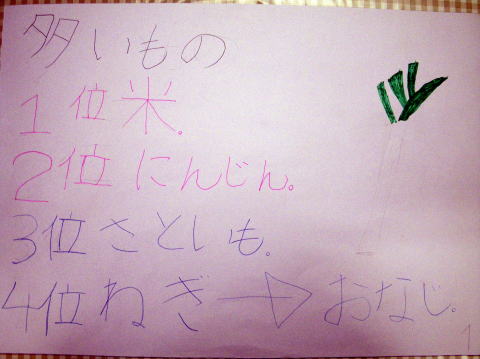 多いもの
1位米。
2位にんじん。
3位さといも。
4位ねぎ→おなじ。
1